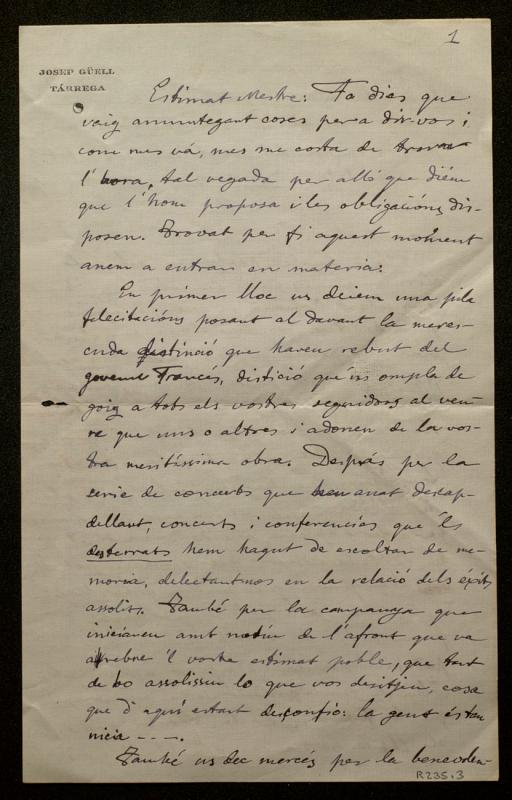 1
JOSEP GÜELL
TÁRREGA
Estimat Mestre: Fa dies que
vaig amuntegant coses per a dir-vos i
com mes vá, mes me costa de trovar
l'hora, tal vegada per alló que diém
que l'hom proposa i les obligacións dis-
posen. Trovat per fi aquest moment
anem a entrar en materia:
En primer lloc us deiem una pila
felicitacións posant al davant la meres-
cuda distinció que haveu rebut del
govern Francés, distició que'ns ompla de
goig a tots els vostres seguidors al veu-
re que uns o altres s'adonen de la vos-
tra meritíssima obra. Després per la
serie de concerts que heu anat desap-
dellant, concerts i conferencies que'ls
desterrats hem hagut de escoltar de me-
moria, delectantnos en la relació dels éxits
assolits. També per la campanya que
iniciareu amb motiu de l'afront que va
rebre'l vostre estimat poble, que tant
de bo assolissiu lo que vos desitjeu, cosa
que d'aquí estant desconfio: la gent és tan
nicia - - -.
També us dec mercés per la benevolen-
R235,3